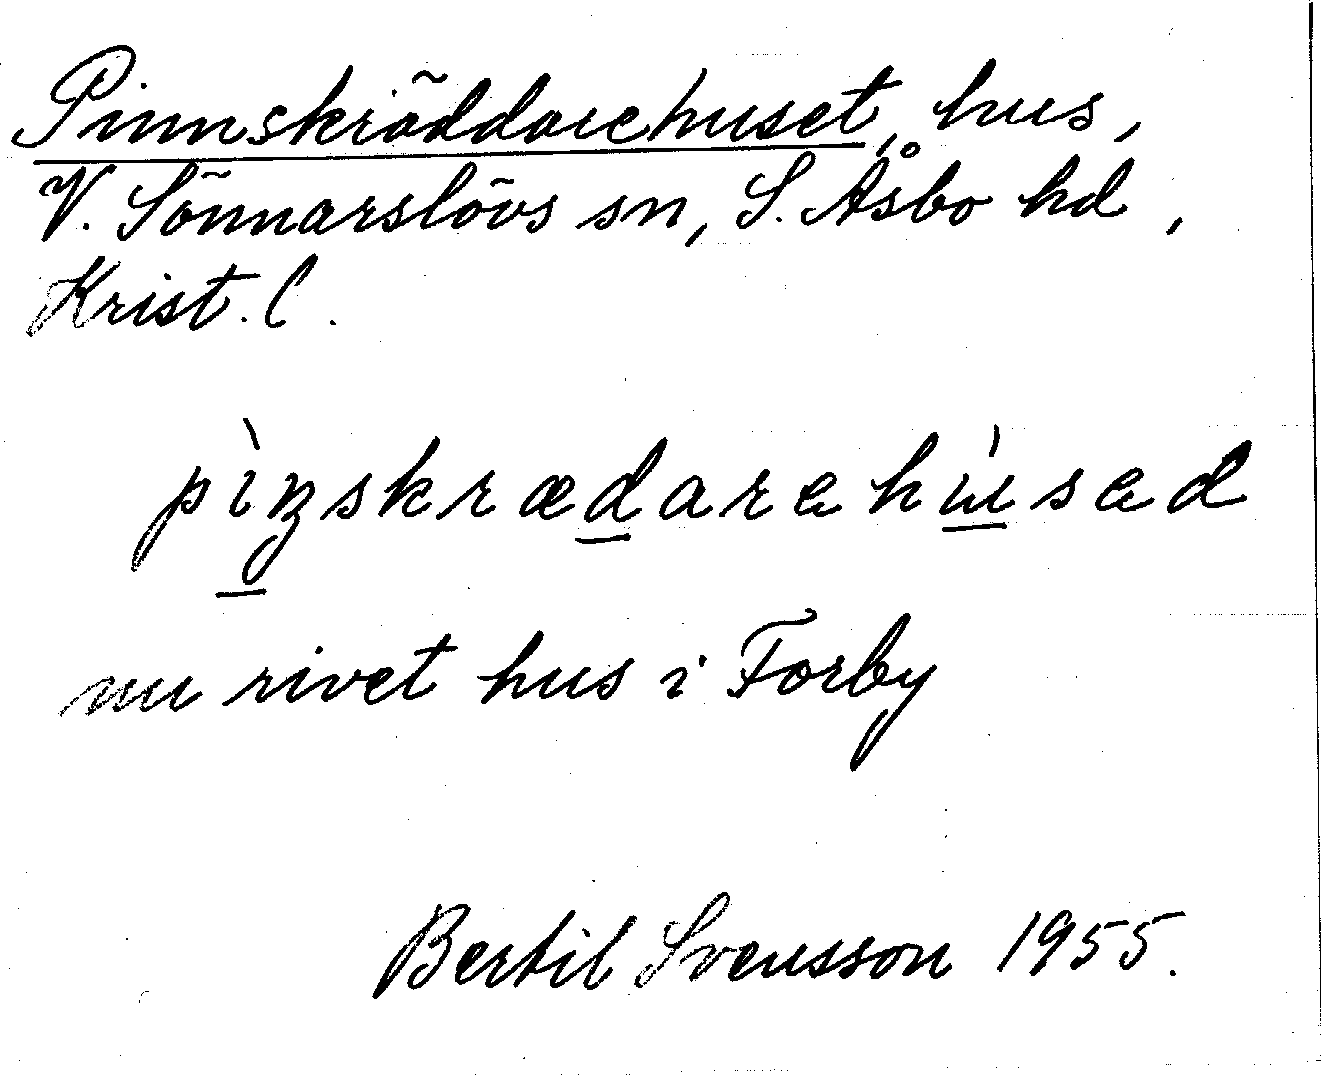 Pinnskräddarehuset, hus,
V. Sönnarslövs sn, S. Åsbo hd,
Krist. l.
pìnskrædarehùsed
nu rivet hus i Forby
Bertil Svensson 1955.